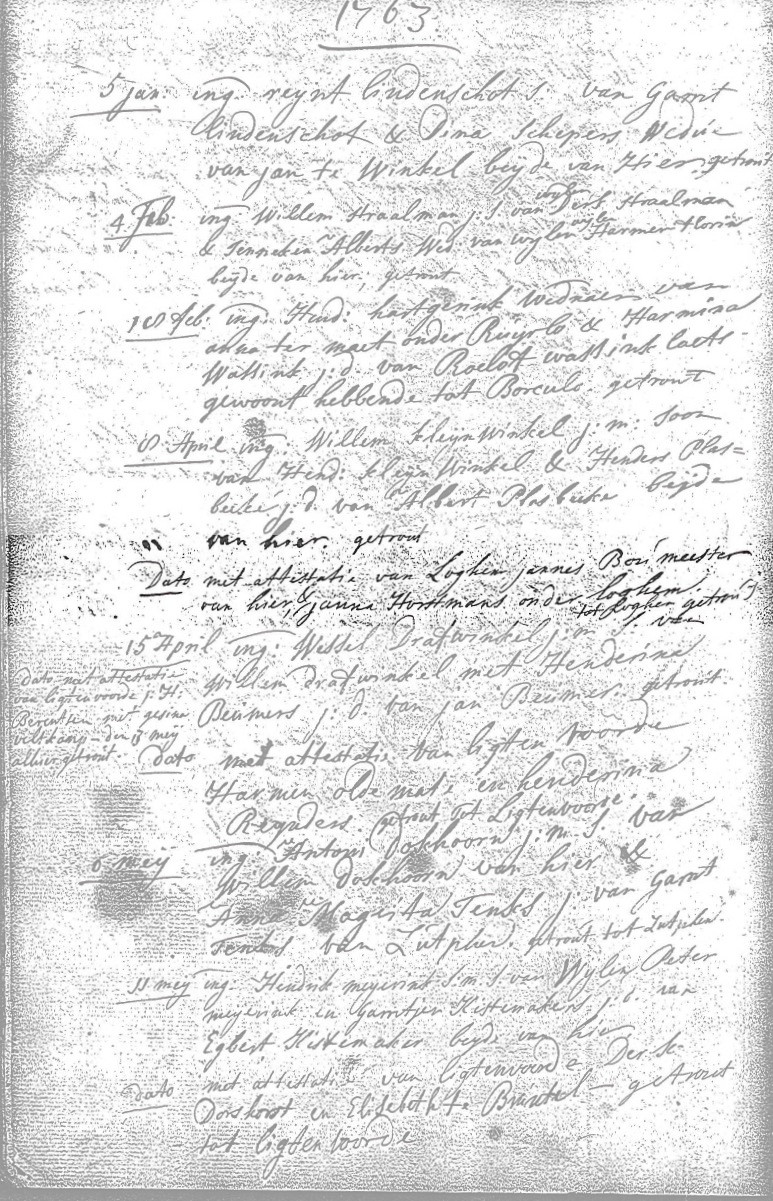 1763
5 jan: ing reynt lindenschot s: van Garrit
lindenschot & Dina Schepers Wedu:e
van jan te Winkel beyde van Hier. getrout
4 Feb: ing Willem Straalman j: S. van wylen Derk Straalman
& Jenneken Alberts Wed. van wylen Harmen Florin
beyde van hier, getrout
18 feb: ing. Hend: hartgerink Weduaer van
anna ter maet onder Ruyrlo & Harmina
Wassink j: d. van Roelof Wassink laets-
gewoont hebbende tot Borculo. getrout
8 April ing. Willem kleyn Winkel j: m: Soon
van Hend: kleyn Winkel & Henders Plas=
beeke j: d. van Albert Plasbeeke beyde
" van hier. getrout
Dato met attestatie van Loghem jannes Bou meester
van hier, & janna Horstmans onder loghem
tot loghem getrout
15 April ing: Wessel Dratwinkel j: m S van
Willem dratwinkel met Henderina
Beumers j: d van jan Beumer. getrout
dato met attestatie
van ligtenvoorde j: H:
Berentsen met gesina
veltkamp den 13 mey
alhier getrout.
dato met attestatie van ligten voorde
Harmen olde mate en henderina
Reynders. getrout tot Ligtenvoorde.
6 mey ing: Antoni Dokhoorn j: m. S. van
Willem Dokhoorn van hier &
Anna Magrita Jenks j: van Garrit
Jenks van Zutphen. getrout tot Zutphen.
11 mey ing. Hindrik meyerink j: m. S van Wylen Peter
meyerink en Garritjen Kistemakers j: d. van
Egbert Kistemaker beyde van hier
dato met attestatie van ligtenvoorde Derk
Dorshorst en Elisabeth te Bruntel - getrout
tot ligtenvoorde